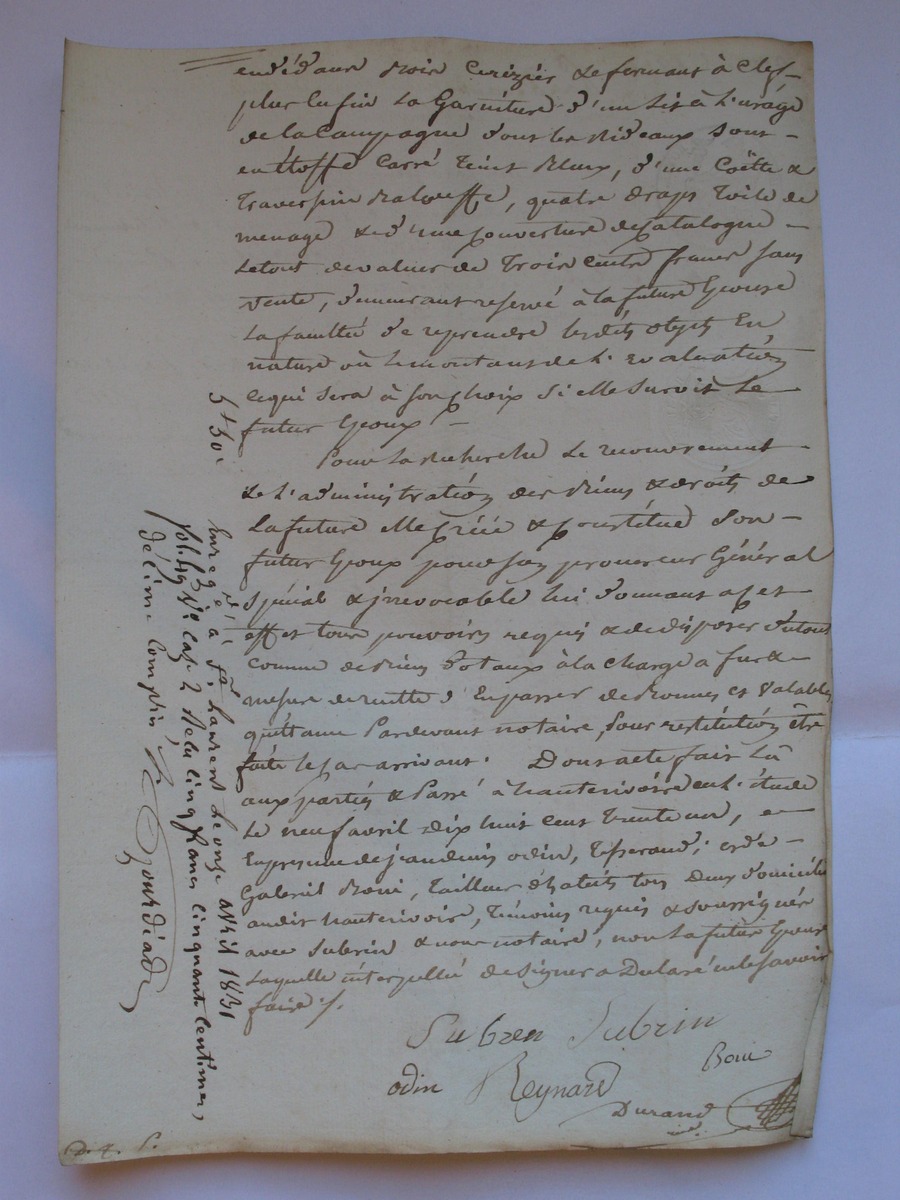 en dedans Bois Cerizier & fermant à Clef –
plus Enfin La Garniture d'un Lit à L'usage
de la Campagne dont les Rideaux sont –
en étoffe Carré teint Bleux, d'une Coëtte &
Traversin Balouffe, quatre draps toile de
menage & d'une Couverture de Catalogne –
Le tout de valeur de Trois Cents francs sans
vente, demeurant reservé à la future Epouse
La faculté de reprendre lesdits objets En
nature où Le montant de L'Evaluation
ce qui sera à son Choix Si elle Survit Le
futur Epoux. –
Pour La Recherche Le recouvrement
& L'administration des Biens & droits de
La future elle Créée & Constitue son –
futur Epoux pour son procureur Général
Spécial & irrevocable lui donnant a cet
effet tous pouvoirs requis & de disposer du tout
comme de Biens dotaux à la Charge a fur &
mesure de recette d'En passer de Bonnes et Valables
quittances Pardevant notaire, pour restitution être
faite le cas arrivant. Dont acte fait Lû
aux parties & Passé à hauterivoire en L'étude
Le neuf avril dix huit Cent Trente un, –
En presence de jean denis odin, Tisserand, et de
Gabriel Boni, Tailleur d'habits tous deux domiciliés
audit hauterivoire, Témoins requis & soussignés
avec Subrin & nous notaire, non La future Epouse
Laquelle interpellée de signer a Déclaré ne le savoir
faire ./.
Subren Subrin
Boni
odin Reynard
Durand
5 f 50 c
Enregé à St Laurent Le onze avril 1831
fol. 89 Vo case 2 Reçu cinq francs cinquante centimes,
décime compris
D. & P.